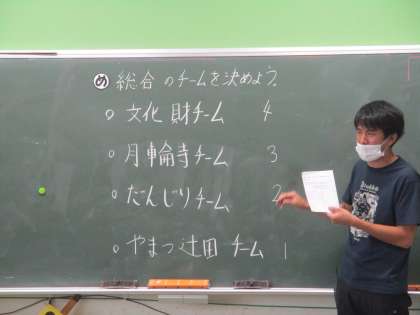 め 総合のチームを決めよう。
○ 文化財チーム 4
○ 月輪寺チーム 3
○ だんじりチーム 2
○ やまつ辻田チーム 1